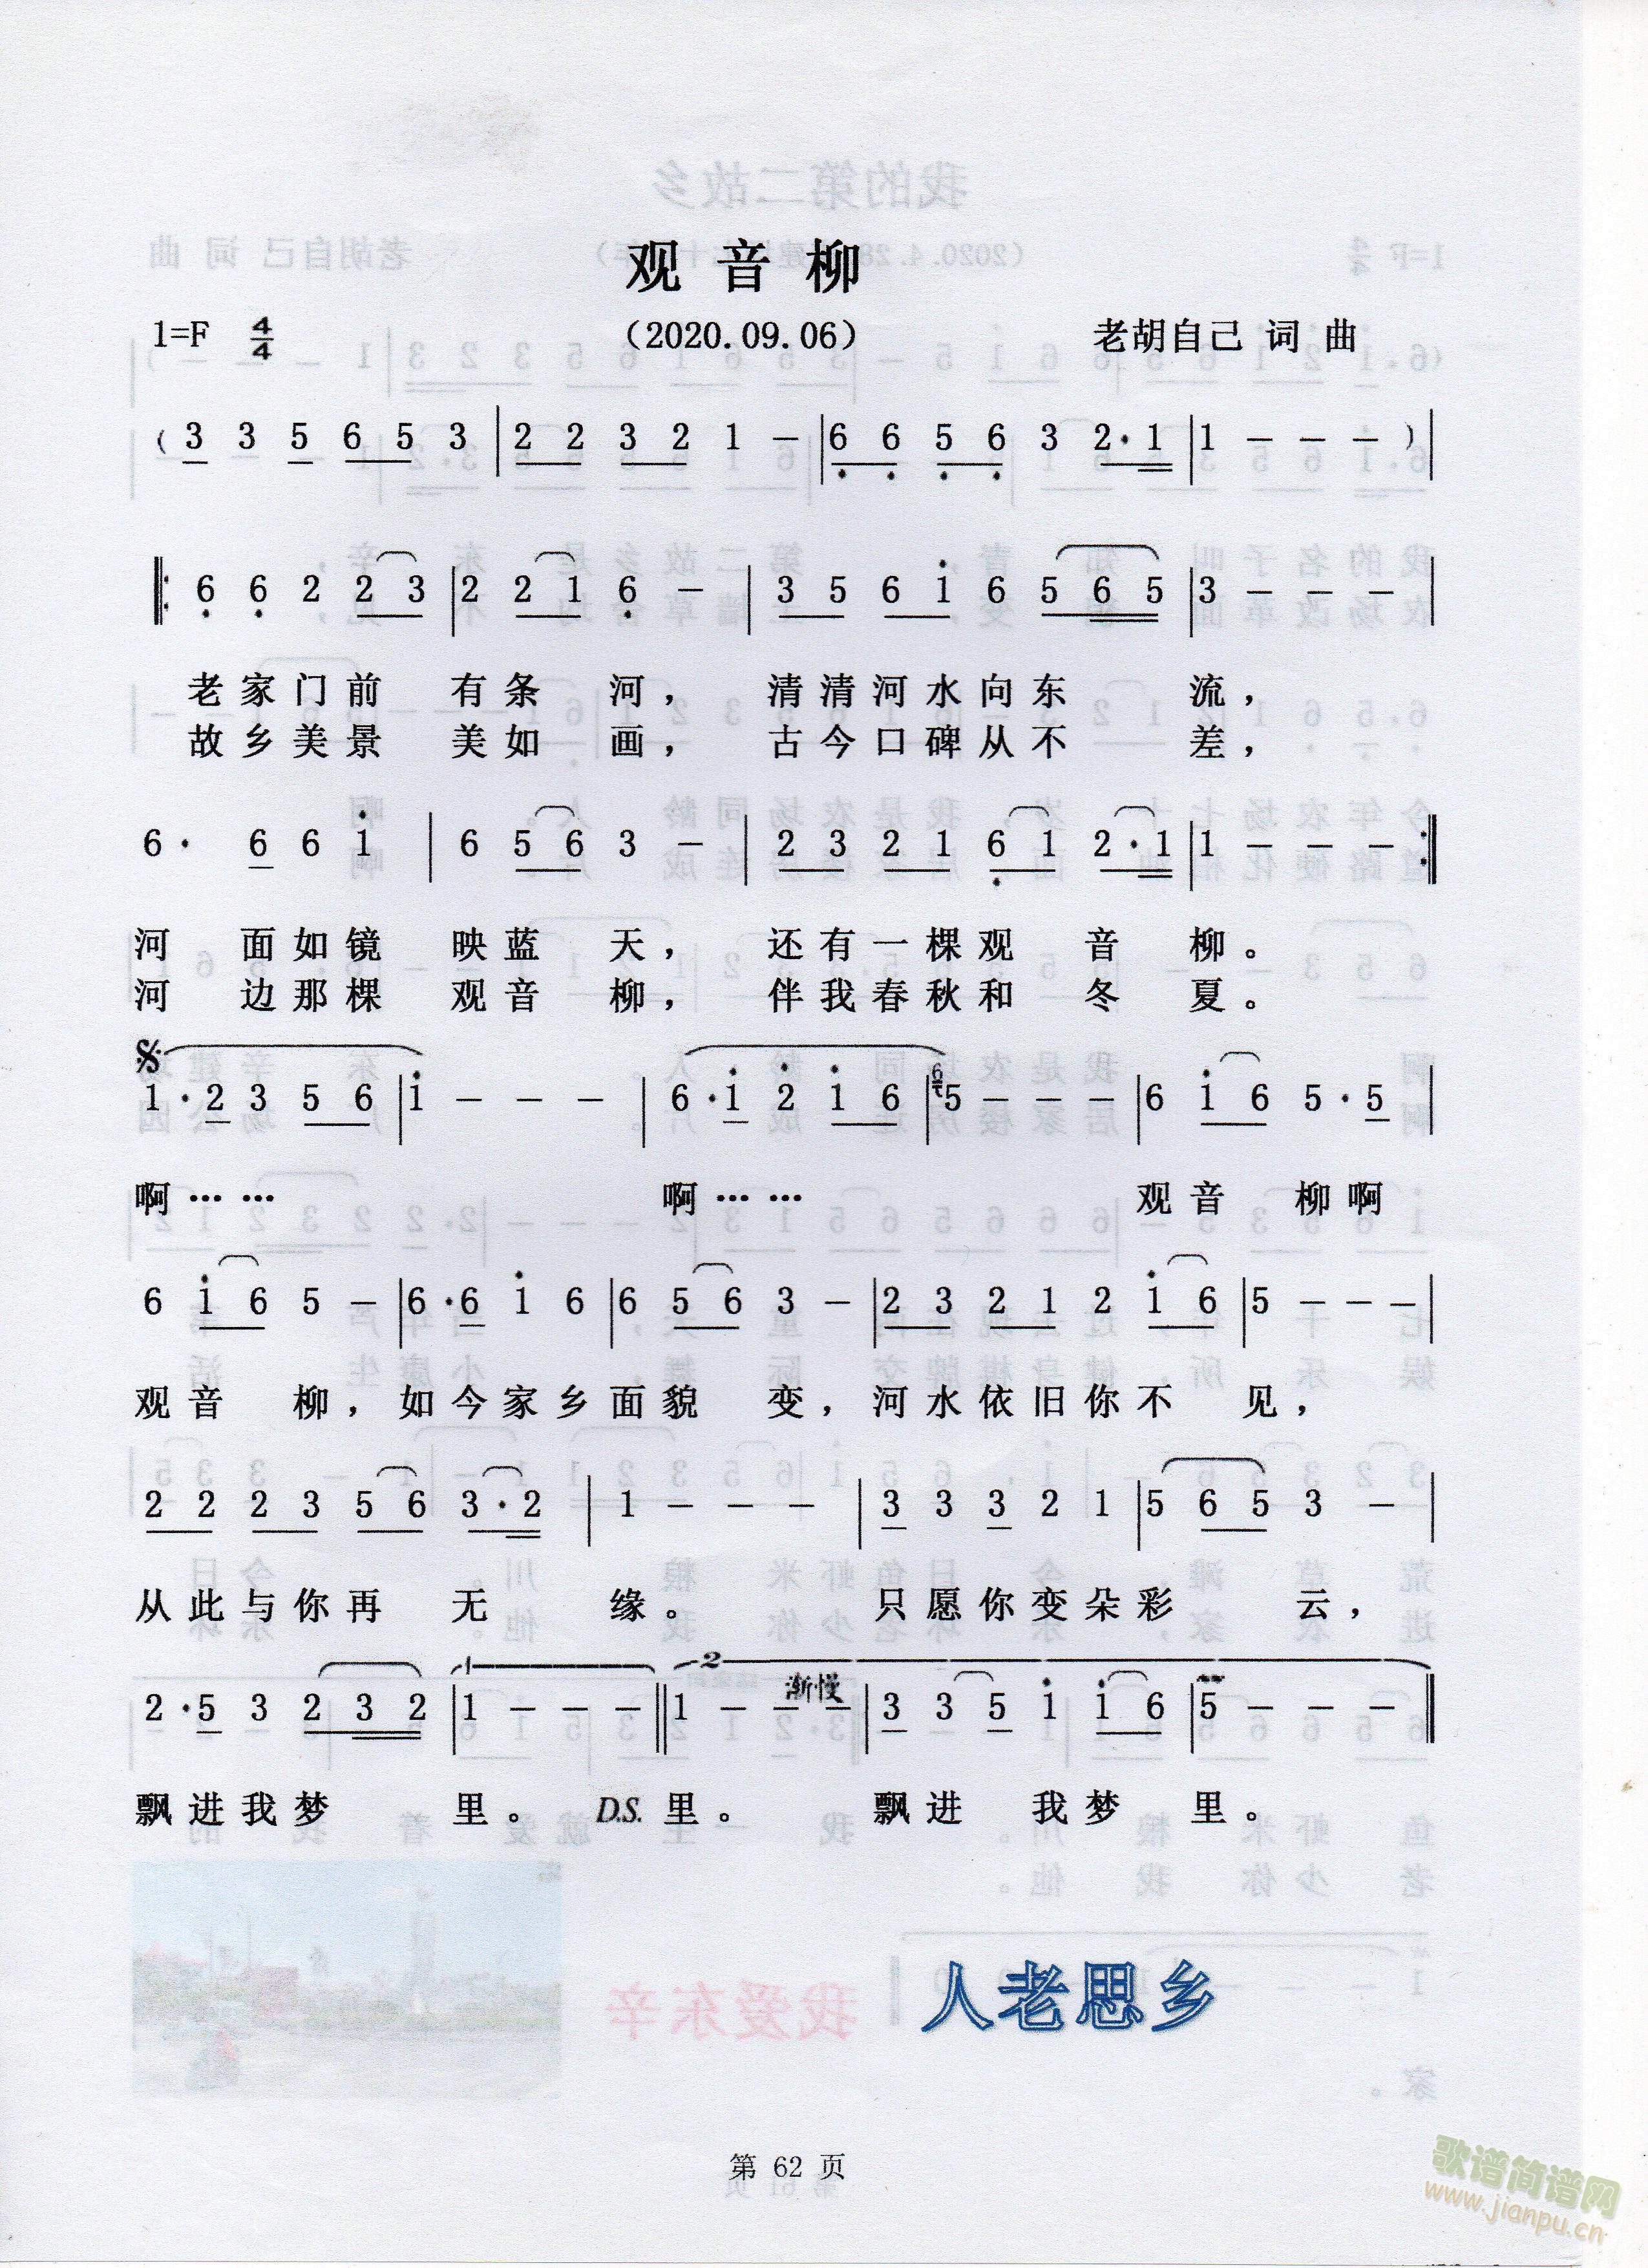 观音柳
1=F 4/4 （2020.09.06） 老胡自己 词 曲
（3 3 5 6 5 3 | 2 2 3 2 1 － | 6 6 5 6 3 2·1 | 1 － － － ）|
‖: 6 6 2 2 3 | 2 2 1 6 － | 3 5 6 i 6 5 6 5 | 3 － － － |
老家门前 有条 河， 清清河水向东 流，
故乡美景 美如 画， 古今口碑从不 差，
6· 6 6 i | 6 5 6 3 － | 2 3 2 1 6 1 2·1 | 1 － － － :‖
河 面如镜 映蓝 天， 还有一棵观 音 柳。
河 边那棵 观音 柳， 伴我春秋和 冬 夏。
𝄋 1·2 3 5 6 | i － － － | 6·i 2 i 6 | 6 5 － － － | 6 i 6 5·5 |
啊…… 啊…… 观音 柳啊
6 i 6 5 － | 6·6 i 6 | 6 5 6 3 － | 2 3 2 1 2 i 6 | 5 － － － |
观音 柳，如今家乡面貌 变，河水依旧你不 见，
2 2 2 3 5 6 3·2 | 1 － － － | 3 3 3 2 1 | 5 6 5 3 － |
从此与你再 无 缘。 只愿你变朵彩 云，
1 2
渐慢
2·5 3 2 3 2 | 1 － － － ‖ 1 － － － | 3 3 5 i i 6 | 5 － － － ‖
飘进我梦 里。 D.S. 里。 飘进 我梦 里。
我爱东辛
人老思乡
第 62 页
歌谱简谱网
www.jianpu.cn